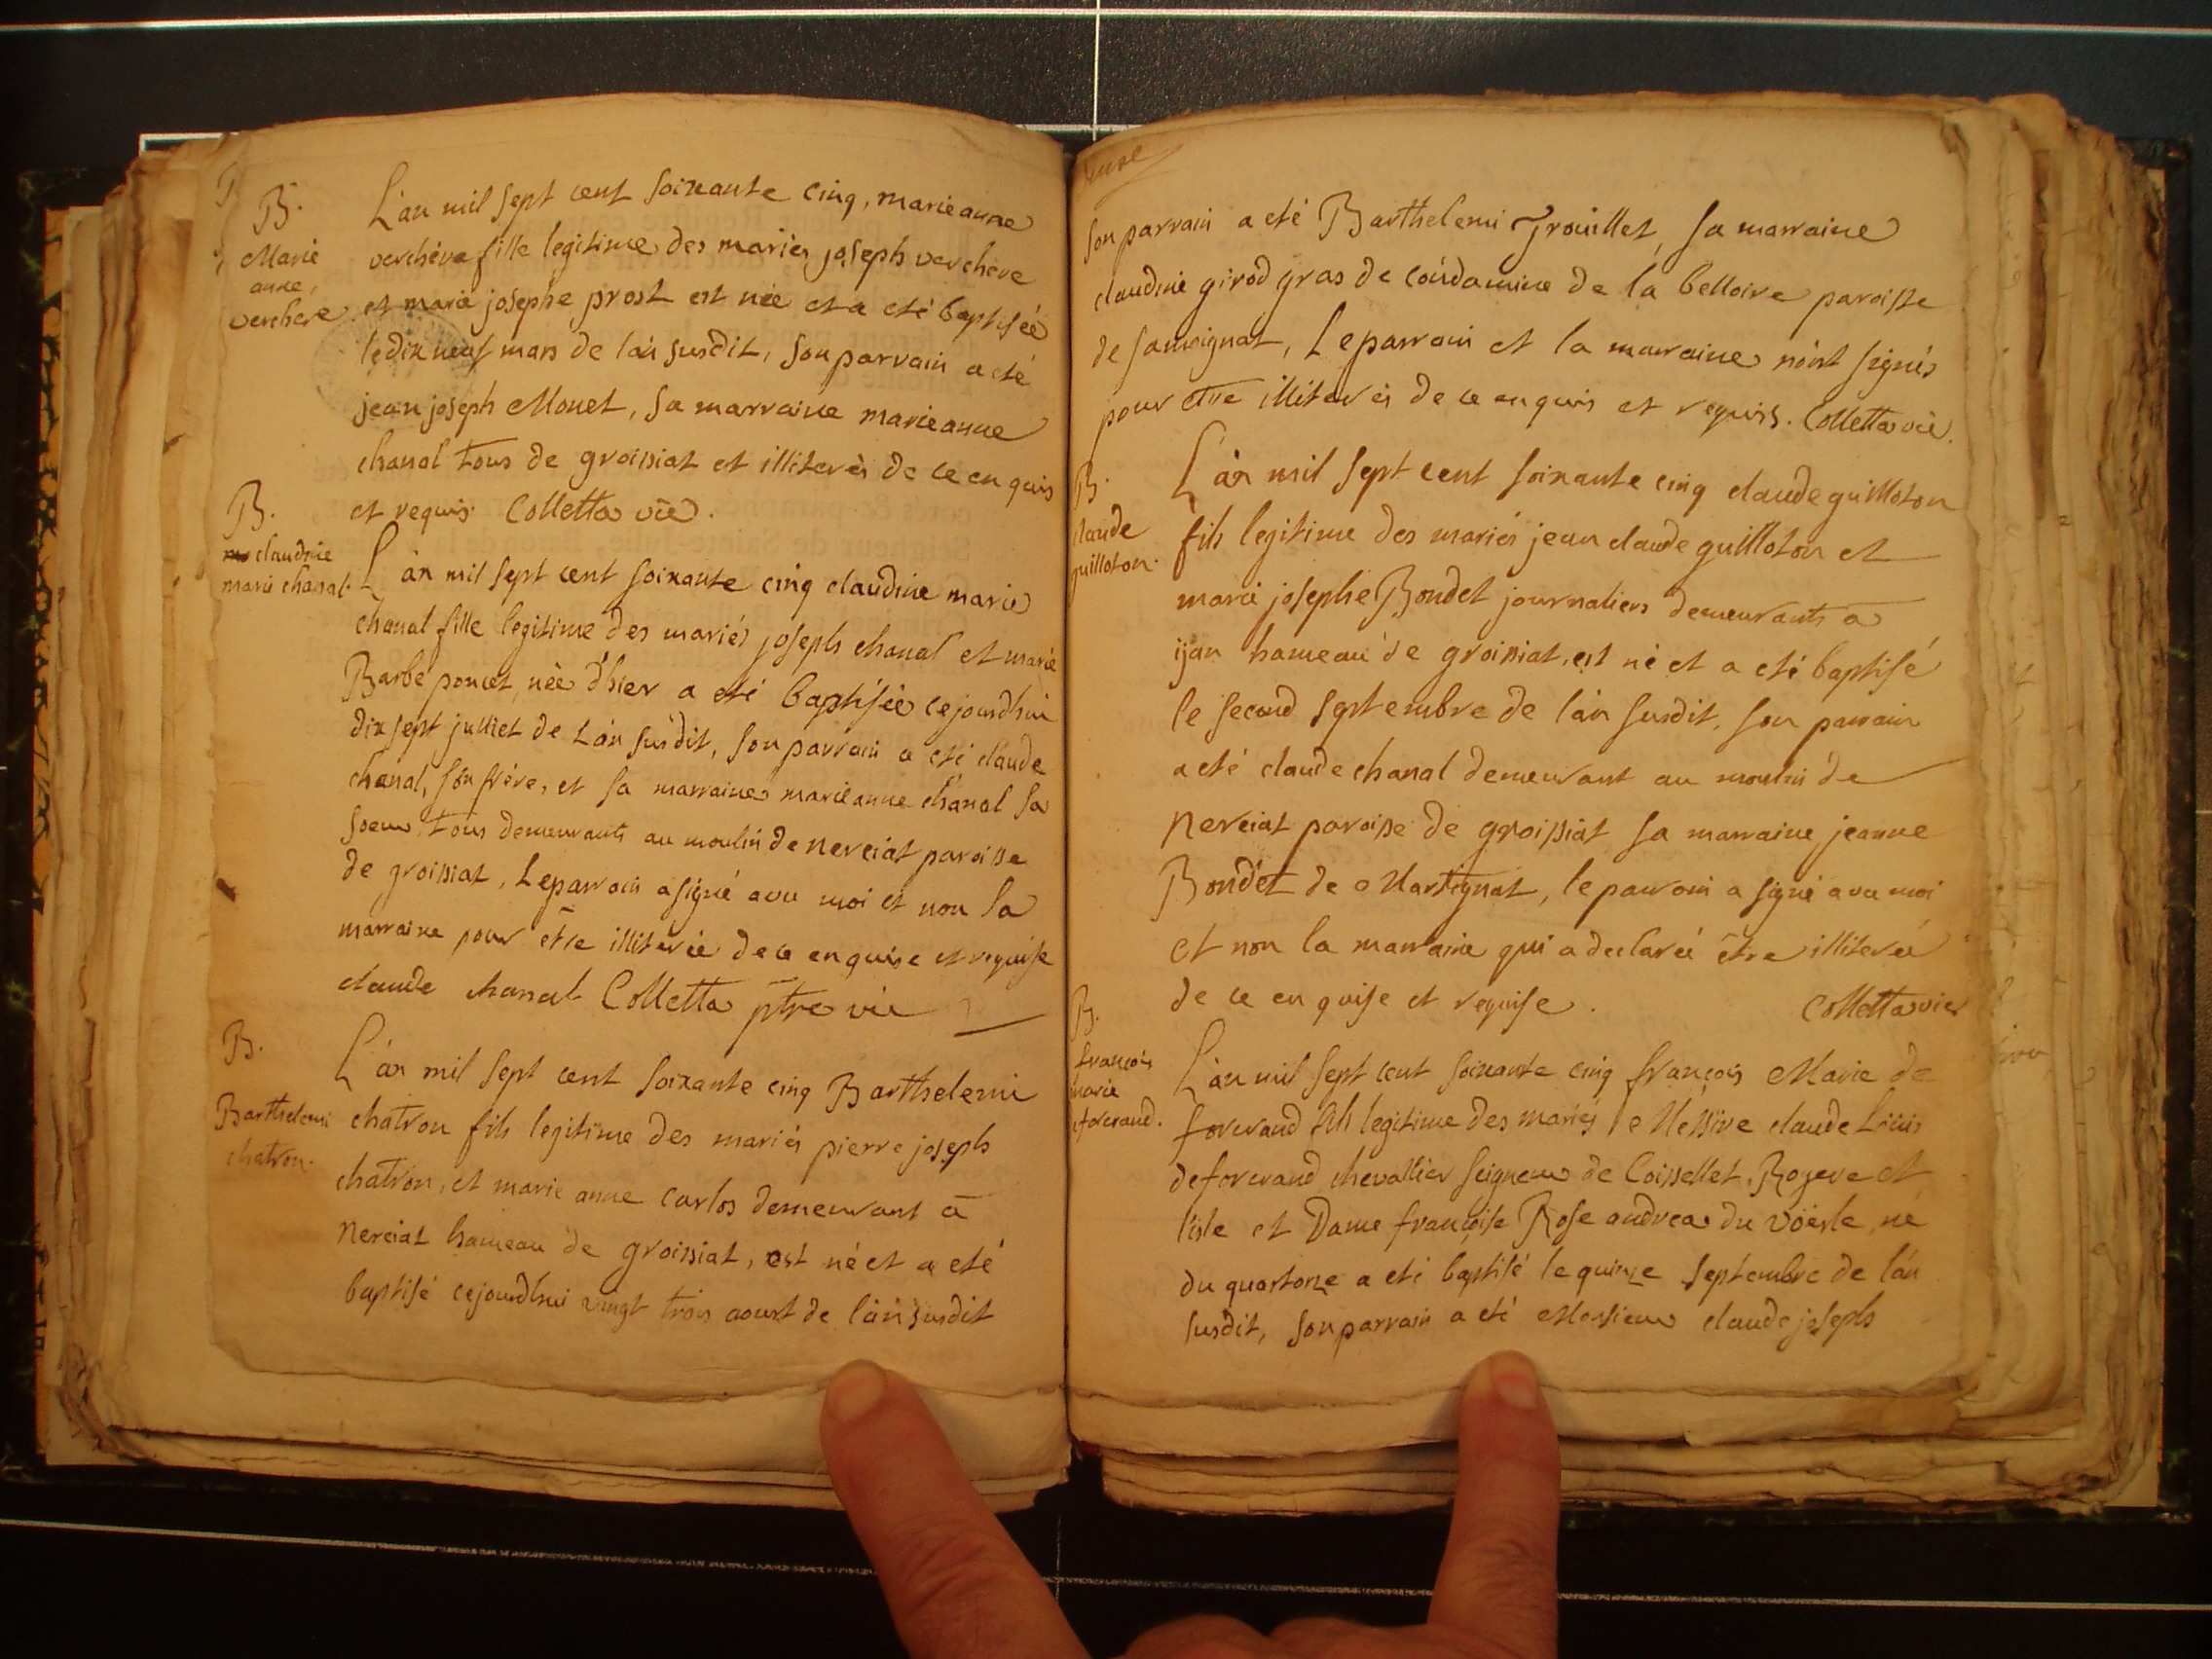 B.
Marie
anne,
verchere
L'an mil sept cent soixante cinq, marie anne
verchère fille legitime des mariés joseph verchere
et marie josephe prost est née et a eté baptisée
le dix neuf mars de l'an susdit, son parrain a eté
jean joseph Monet, sa marraine marie anne
chanal tous de groissiat et illiterés de ce enquis
et requis. Colletta vic.
B.
claudine
marie chanal.
L'an mil sept cent soixante cinq claudine marie
chanal fille legitime des mariés joseph chanal et marie
Barbe poncet, née d'hier a eté baptisée cejourdhui
dix sept julliet de L'an susdit, son parrain a eté claude
chanal, son frère, et sa marraine marie anne chanal sa
soeur tous demeurants au moulin de nerciat paroisse
de groissiat, Le parrain a signé avec moi et non la
marraine pour être illiterée de ce enquise et requise
claude chanal Colletta ptre vic
B.
Barthelemi
chatron.
L'an mil sept cent soixante cinq Barthelemi
chatron fils legitime des mariés pierre joseph
chatron, et marie anne carlos demeurant a
Nerciat hameau de groissiat, est né et a eté
baptisé cejourdhui vingt trois aoust de l'an susdit
son parrain a eté Barthelemi Trouillet, sa marraine
claudine girod gras de condamine de la belloire paroisse
de samoignat, Le parrain et la marraine n'ont signés
pour etre illiterés de ce enquis et requis. Colletta vic.
B.
claude
guilloton.
L'an mil sept cent soixante cinq claude guilloton
fils legitime des mariés jean claude guilloton et
marie josephe Bondet journaliers demeurants a
ijan hameau de groissiat, est né et a eté baptisé
le second septembre de l'an susdit, son parrain
a eté claude chanal demeurant au moulin de
nerciat paroisse de groissiat sa marraine jeanne
Bondet de Martignat, le parrain a signé avec moi
et non la marraine qui a declareé être illiterée
de ce enquise et requise. Colletta vic
B.
françois
marie
deforcrand.
L'an mil sept cent soixante cinq françois Marie de
forcrand fils legitime des mariés Messire claude Louis
deforcrand chevallier seigneur de Coissellet, Rogere et
l'isle et Dame françoise Rose andrea du voërle, né
du quatorze a eté baptisé le quinze septembre de l'an
susdit, son parrain a eté Messieur claude joseph